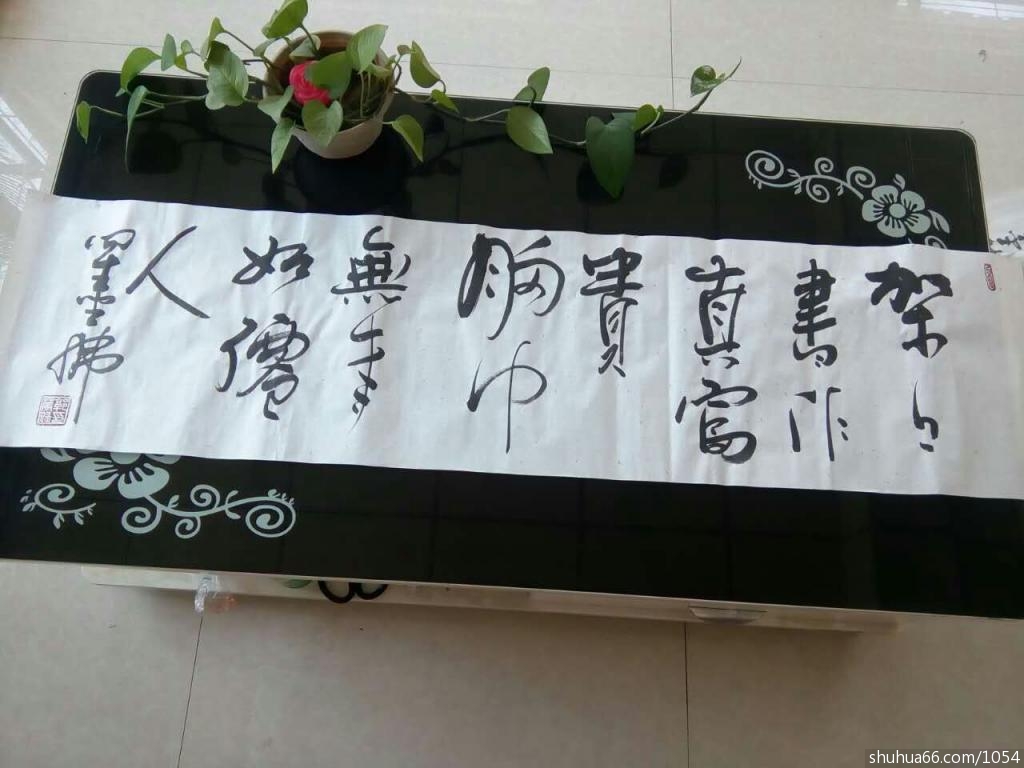 架上
書作
真富
貴
胸中
無事
如僊
人
墨佛
shuhua66.com/1054